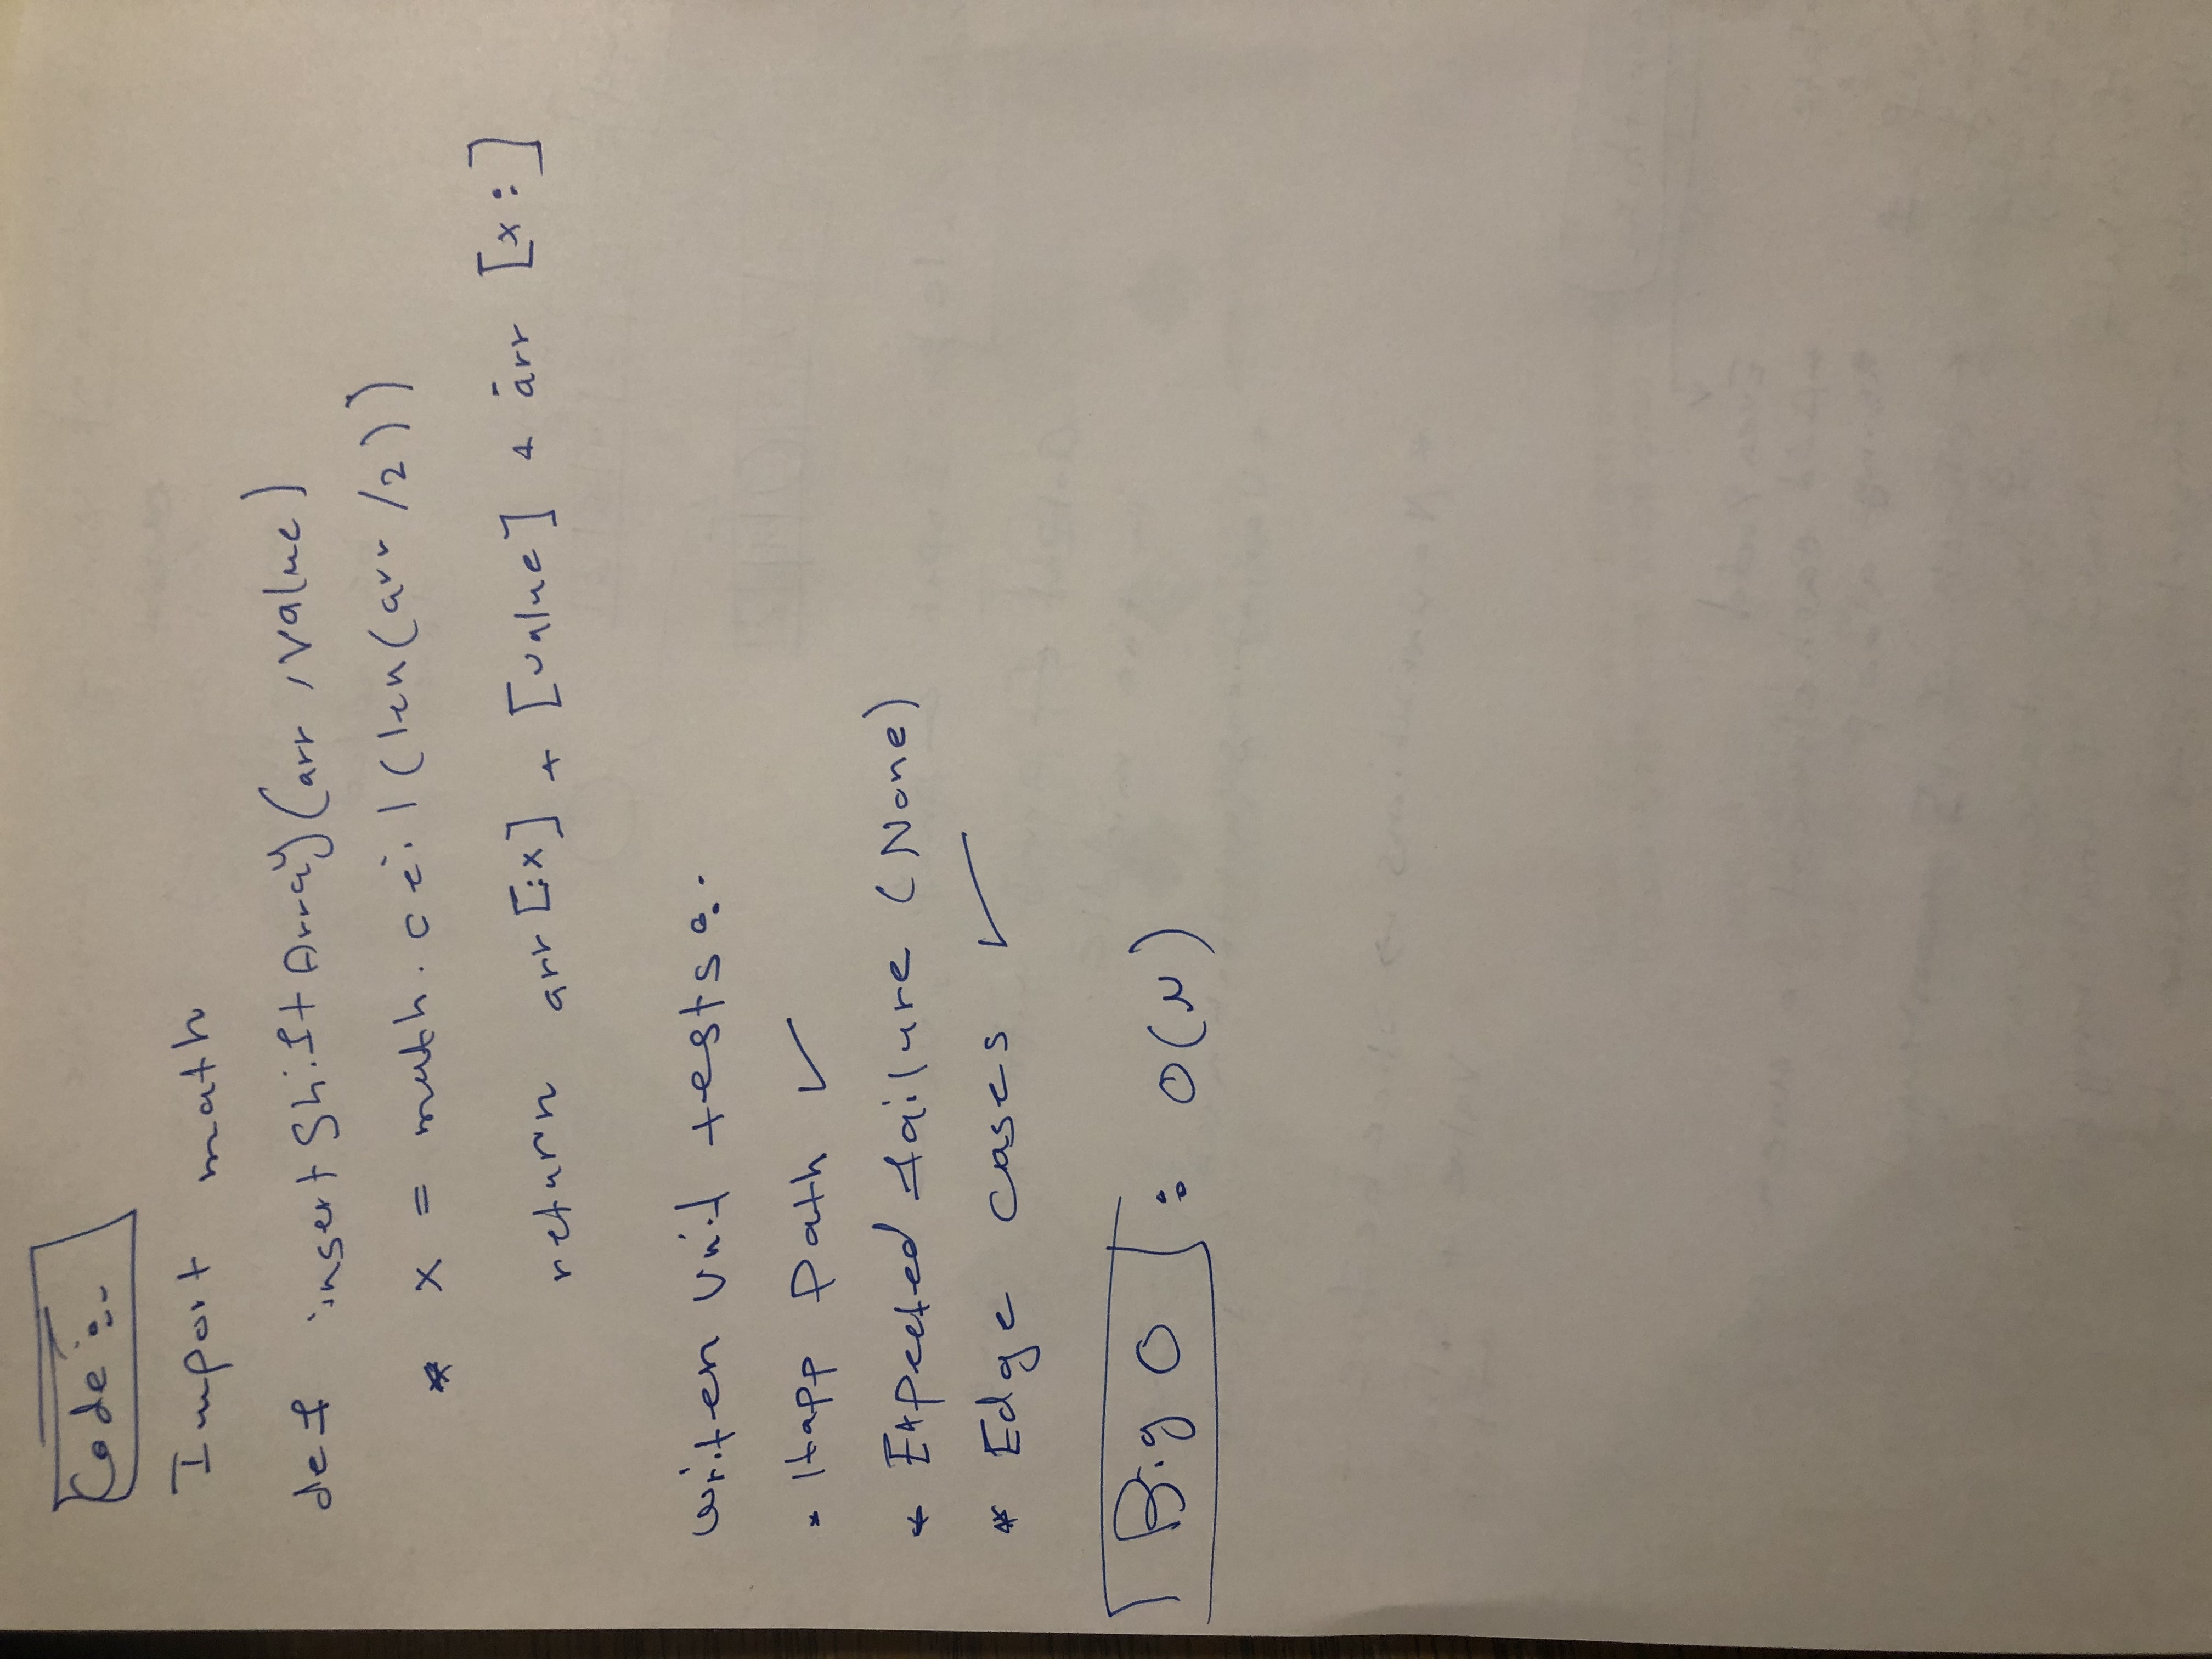 Code :-
Import math
def insertShiftArray(arr, value)
* x = math.ceil(len(arr/2))
return arr[:x] + [value] + arr [x:]
writen Unit tests :.
* Happ Path ✓
* Expected failure (None)
* Edge cases ✓
Big O : O(N)